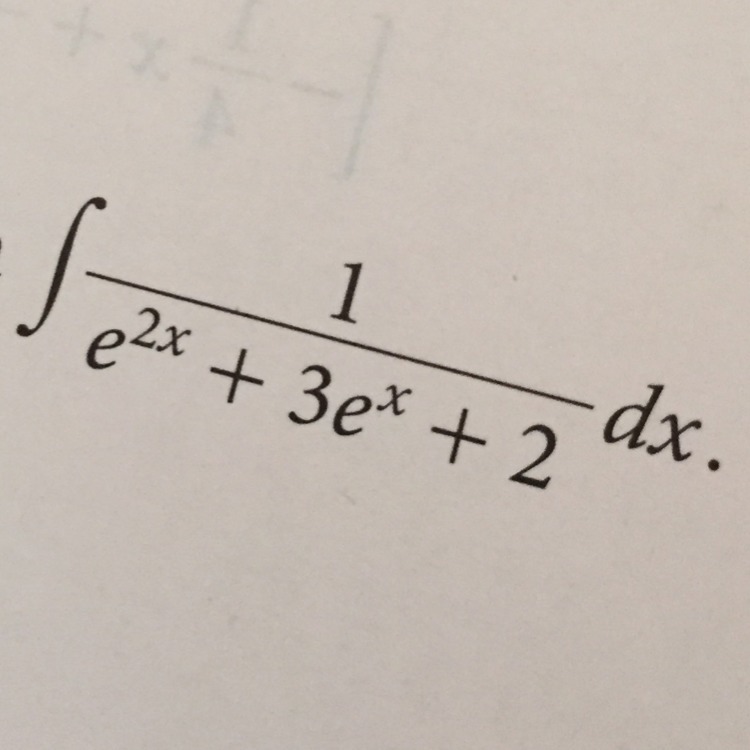 ∫ 1/(e^{2x} + 3e^x + 2) dx.